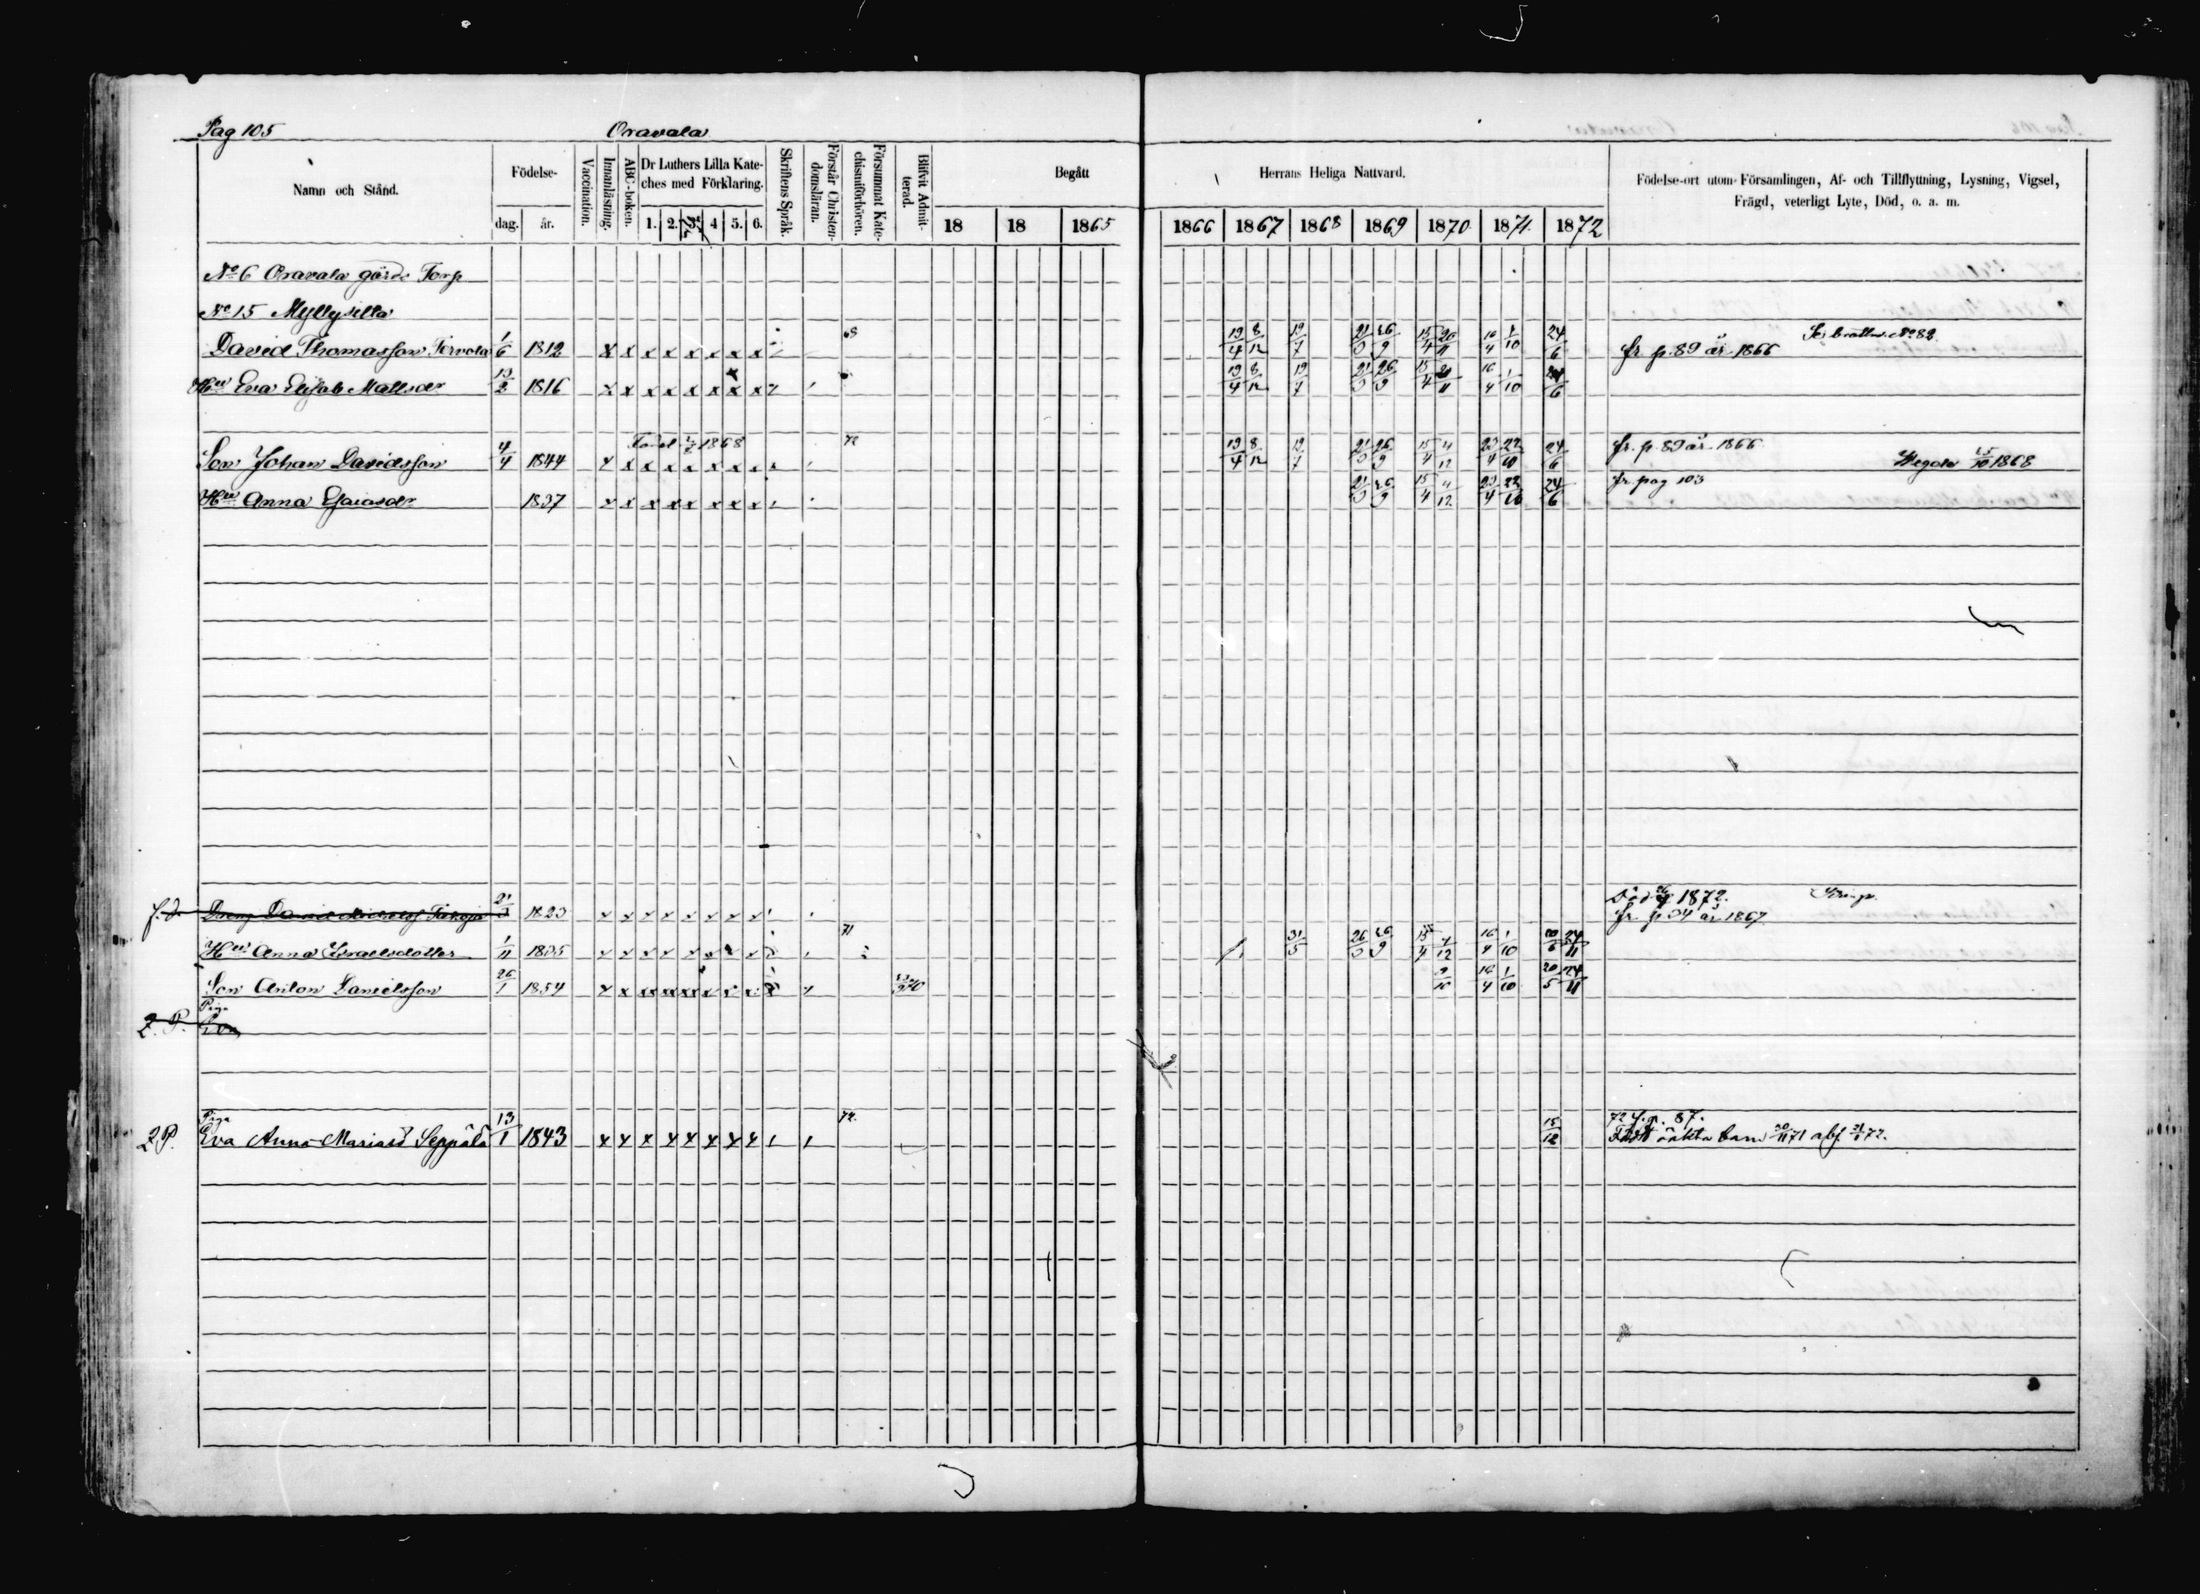 Pag 105 Oravala
Namn och Stånd. Födelse- dag. år. Vaccination. Innanläsning. ABC-boken. Dr Luthers Lilla Kateches med Förklaring. 1. 2. 3. 4 5. 6. Skriftens Språk. Förstår Christendomsläran. Försummat Katechismiförhören. Blifvit Admitterad. Begått Herrans Heliga Nattvard. Födelse-ort utom Församlingen, Af- och Tillflyttning, Lysning, Vigsel, Frägd, veterligt Lyte, Död, o. a. m.
18 18 1865 1866 1867 1868 1869 1870 1871 1872
No 6 Oravala gårds Torp
No 15 Myllysilta
David Thomasson Tervola 1/6 1812 x x x x x x x x 68 19/4 8/12 19/7 21/3 26/9 15/4 20/11 16/4 1/10 24/6 fr. p. 89 år 1866
Hu Eva Elisab Mattsdr 13/2 1816 x x x x x x x x 19/4 8/12 19/7 21/3 26/9 15/4 16/4 1/10 24/6
1868 72
Son Johan Davidsson 4/4 1844 x x x x x x x x 19/4 8/12 19/7 21/3 26/9 15/4 4/12 23/4 22/10 24/6 fr. p. 89 år 1866 1868
Hu Anna Esaiasdr 1837 x x x x x x x x 21/3 26/9 15/4 4/12 23/4 22/10 24/6 fr. pag 103
Död 1872.
Dreng 21/3 1823 x x x x x x x x fr. p 34 år 1867
Hu Anna Israelsdotter 1/11 1835 x x x x x x x x 71 31/5 26/3 26/9 15/4 4/12 16/4 1/10 20/6 24/11
Son Anton Danielsson 26/1 1854 x x xx xx xx x x x 9/10 16/4 1/10 20/5 24/11
Piga
Z. P. Eva
Piga
Z P. Eva Anna Mariasd Seppälä 13/1 1843 x x x x x x x x 72. 15/12 72 f. p. 87.
Född oäkta barn 20/11 71 abs. 72.